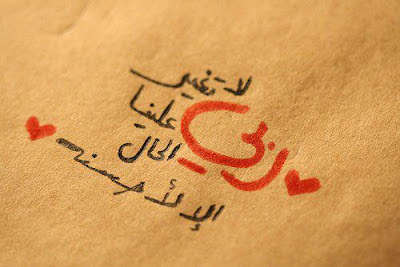 ربي
لا تغير
علينا
الحال
الا لأحسنه